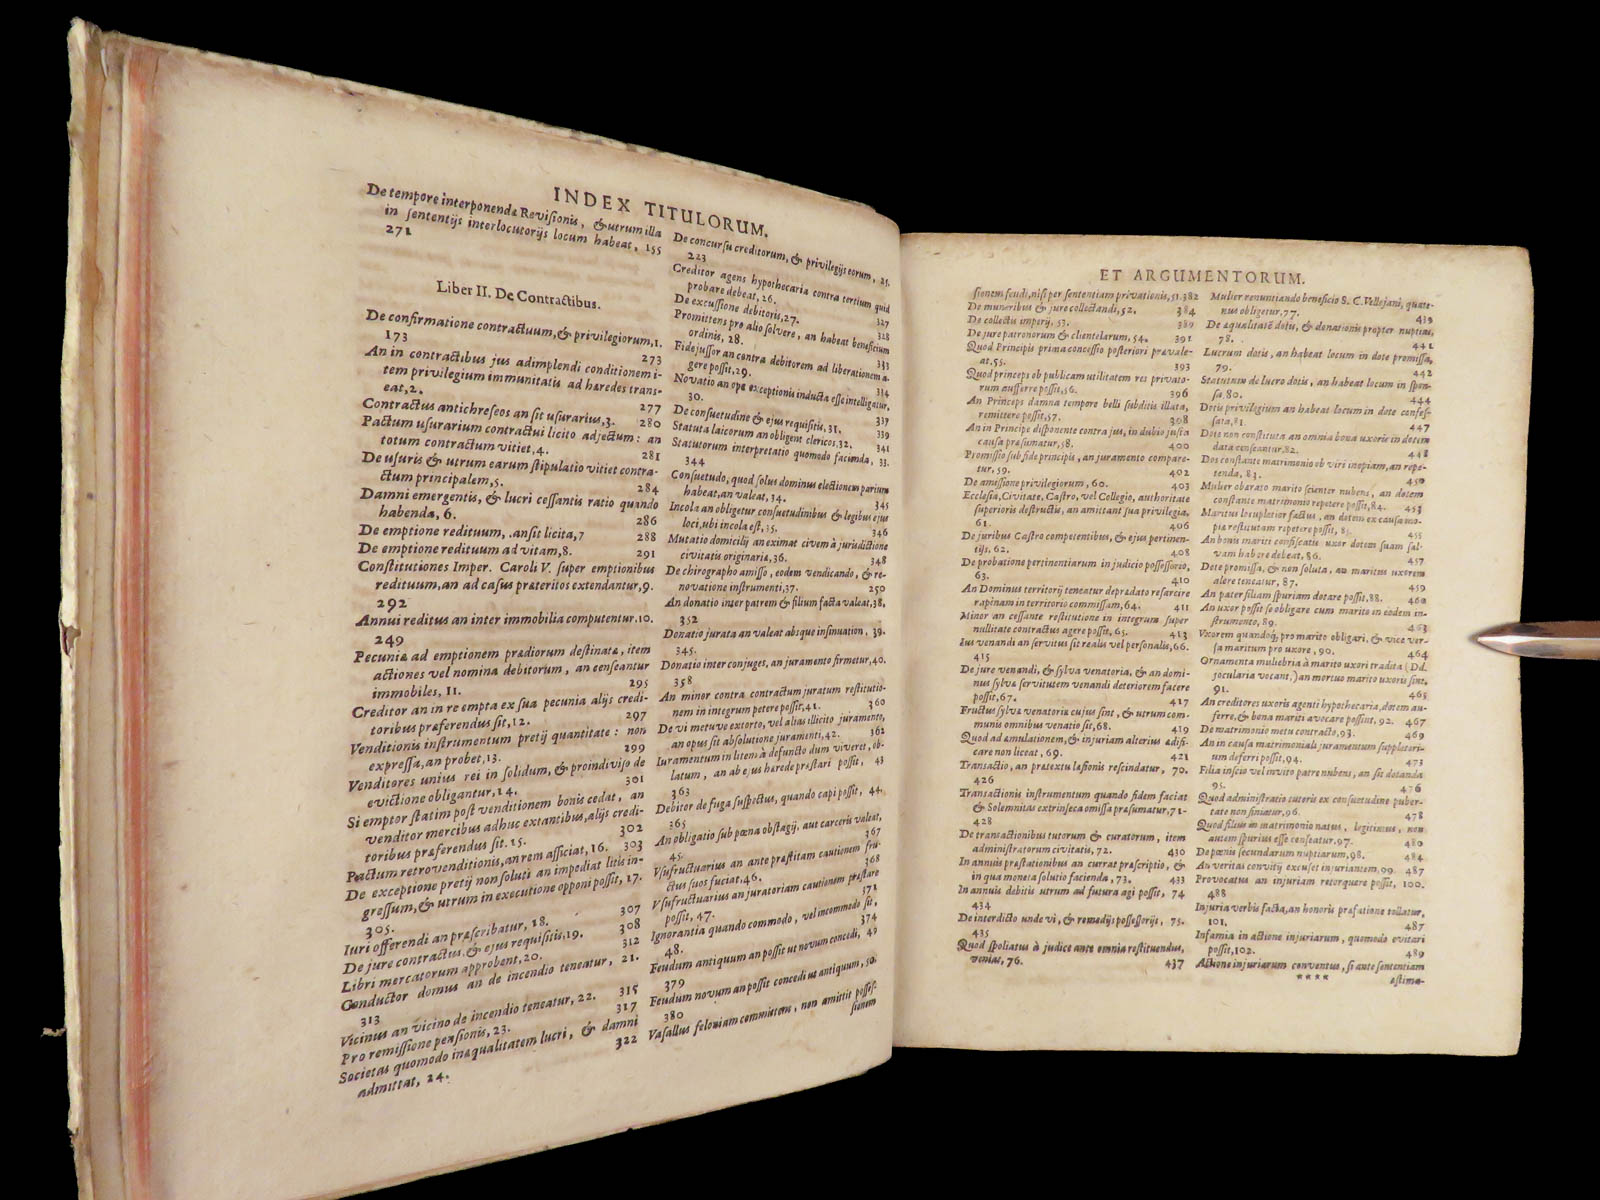 INDEX TITULORUM.
De tempore interponendæ Revisionis, & utrum illa
in sententijs interlocutorijs locum habeat, 155
271
Liber II. De Contractibus.
De confirmatione contractuum, & privilegiorum, 1.
173
An in contractibus jus adimplendi conditionem i-
tem privilegium immunitatis ad hæredes trans-
eat, 2. 273
Contractus antichreseos an sit usurarius, 3. 277
Pactum usurarium contractui licito adjectum: an
totum contractum vitiet, 4. 280
De usuris & utrum earum stipulatio vitiet contra-
ctum principalem, 5. 281
Damni emergentis, & lucri cessantis ratio quando
habenda, 6. 284
De emptione redituum, an sit licita, 7 286
De emptione redituum ad vitam, 8. 288
Constitutiones Imper. Caroli V. super emptionibus
redituum, an ad casus præteritos extendantur, 9. 291
292
Annui reditus an inter immobilia computentur. 10.
249
Pecuniæ ad emptionem prædiorum destinatæ, item
actiones vel nomina debitorum, an censeantur
immobiles, 11. 295
Creditor an in re empta ex sua pecunia alijs credi-
toribus præferendus sit, 12. 297
Venditionis instrumentum pretij quantitate: non
expressa, an probet, 13. 299
Venditores unius rei in solidum, & proindiviso de
evictione obligantur, 14. 301
Si emptor statim post venditionem bonis cedat, an
venditor mercibus adhuc extantibus, alijs credi-
toribus præferendus sit. 15. 302
Pactum retrovenditionis, an rem afficiat, 16. 303
De exceptione pretij non soluti an impediat litis in-
gressum, & utrum in executione opponi possit, 17.
305.
Iuri offerendi an præscribatur, 18. 307
De jure contractus, & ejus requisitis, 19. 308
Libri mercatorum approbent, 20. 312
Conductor domus an de incendio teneatur, 21.
313
Vicinus an vicino de incendio teneatur, 22. 315
Pro remissione pensionis, 23. 317
Societas quomodo inæqualitatem lucri, & damni
admittat, 24. 322
De concursu creditorum, & privilegijs eorum, 25.
223
Creditor agens hypothecaria contra tertium quid
probare debeat, 26. 327
De excussione debitoris, 27. 328
Promittens pro alio solvere, an habeat beneficium
ordinis, 28. 333
Fidejussor an contra debitorem ad liberationem a-
gere possit, 29. 334
Novatio an ope exceptionis inducta esse intelligatur,
30. 337
De consuetudine & ejus requisitis, 31. 339
Statuta laicorum an obligent clericos, 32. 341
Statutorum interpretatio quomodo facienda, 33.
344
Consuetudo, quod solus dominus electionem parium
habeat, an valeat, 34. 345
Incola an obligetur consuetudinibus & legibus ejus
loci, ubi incola est, 35. 346
Mutatio domicilij an eximat civem à jurisdictione
civitatis originariæ, 36. 348
De chirographo amisso, eodem vendicando, & re-
novatione instrumenti, 37. 250
An donatio inter patrem & filium facta valeat, 38.
352
Donatio jurata an valeat absque insinuatione, 39.
345.
Donatio inter conjuges, an juramento firmetur, 40.
358
An minor contra contractum juratum restitutio-
nem in integrum petere possit, 41. 360
De vi metuve extorto, vel alias illicito juramento,
an opus sit absolutione juramenti, 42. 362
Iuramentum in litem à defuncto dum viveret, ob-
latum, an ab ejus hærede præstari possit, 43
363
Debitor de fuga suspectus, quando capi possit, 44.
365
An obligatio sub pœna obstagij, aut carceris valeat,
45. 367
Vsufructuarius an ante præstitam cautionem fru-
ctus suos faciat, 46. 368
Vsufructuarius an juratoriam cautionem præstare
possit, 47. 371
Ignorantia quando commodo, vel incommodo sit,
48. 374
Feudum antiquum an possit ut novum concedi, 49
379
Feudum novum an possit concedi ut antiquum, 50.
380
Vasallus feloniam committens, non amittit posses-
sionem
ET ARGUMENTORUM.
sionem feudi, nisi per sententiam privationis, 51. 382
De muneribus & jure collectandi, 52. 384
De collectis imperij, 53. 389
De jure patronorum & clientelarum, 54. 391
Quod Principis prima concessio posteriori prævale-
at. 55. 393
Quod princeps ob publicam utilitatem res privato-
rum aufferre possit, 56. 396
An Princeps damna tempore belli subditis illata,
remittere possit, 57. 398
An in Principe disponente contra jus, in dubio justa
causa præsumatur, 58. 400
Promissio sub fide principis, an juramento compare-
tur. 59. 402
De amissione privilegiorum, 60. 403
Ecclesia, Civitate, Castro, vel Collegio, authoritate
superioris destructis, an amittant sua privilegia,
61. 406
De juribus Castro competentibus, & ejus pertinen-
tijs, 62. 408
De probatione pertinentiarum in judicio possessorio,
63. 410
An Dominus territorij teneatur deprædato resarcire
rapinam in territorio commissam, 64. 411
Minor an cessante restitutione in integrum super
nullitate contractus agere possit, 65. 413
Ius venandi an servitus sit realis vel personalis, 66.
415
De jure venandi, & sylva venatoria, & an domi-
nus sylvæ servitutem venandi deteriorem facere
possit, 67. 417
Fructus sylvæ venatoriæ cujus sint, & utrum com-
munis omnibus venatio sit, 68. 419
Quod ad æmulationem, & injuriam alterius ædifi-
care non liceat, 69. 421
Transactio, an prætextu læsionis rescindatur, 70.
426
Transactionis instrumentum quando fidem faciat
& Solemnitas extrinseca omissa præsumatur, 71.
428
De transactionibus tutorum & curatorum, item
administratorum civitatis, 72. 430
In annuis præstationibus an currat præscriptio, &
in qua moneta solutio facienda, 73. 433
In annuis debitis utrum ad futura agi possit, 74
434
De interdicto unde vi, & remedijs possessorijs, 75.
435
Quod spoliatus à judice ante omnia restituendus,
veniat, 76. 437
Mulier renuntiando beneficio S. C. Vellejani, quate-
nus obligetur. 77. 439
De æqualitate dotis, & donationis propter nuptias,
78. 441
Lucrum dotis, an habeat locum in dote promissa,
79. 442
Statutum de lucro dotis, an habeat locum in spon-
sa 80. 444
Dotis privilegium an habeat locum in dote confes-
sata, 81. 447
Dote non constituta an omnia bona uxoris in dotem
data censeantur, 82. 448
Dos constante matrimonio ob viri inopiam, an repe-
tenda, 83. 450
Mulier obærato marito scienter nubens, an dotem
constante matrimonio repetere possit, 84. 453
Maritus locupletior factus, an dotem ex causa ino-
piæ restitutam repetere possit, 85. 455
An bonis mariti confiscatis uxor dotem suam sal-
vam habere debeat, 86. 457
Dote promissa, & non soluta, an maritus uxorem
alere teneatur, 87. 459
An pater filiam spuriam dotare possit, 88. 460
An uxor possit se obligare cum marito in eodem in-
strumento, 89. 463
Vxorem quandoq; pro marito obligari, & vice ver-
sa maritum pro uxore, 90. 464
Ornamenta muliebria à marito uxori tradita (Dd.
jocularia vocant,) an mortuo marito uxoris sint,
91. 465
An creditores uxoris agenti hypothecaria, dotem au-
ferre, & bona mariti avocare possint, 92. 467
De matrimonio metu contracto, 93. 469
An in causa matrimoniali juramentum suppletori-
um deferri possit, 94. 473
Filia inscio vel invito patre nubens, an sit dotanda
95. 476
Quod administratio tutoris ex consuetudine puber-
tate non finiatur, 96. 478
Quod filius in matrimonio natus, legitimus, non
autem spurius esse censeatur. 97. 480
De pœnis secundarum nuptiarum, 98. 484
An veritas convitij excuset injuriantem, 99. 487
Provocatus an injuriam retorquere possit, 100.
488
Injuria verbis facta, an honoris præfatione tollatur,
101. 487
Infamia in actione injuriarum, quomodo evitari
possit, 102. 489
Actione injuriarum conventus, si ante sententiam
**** æstima-